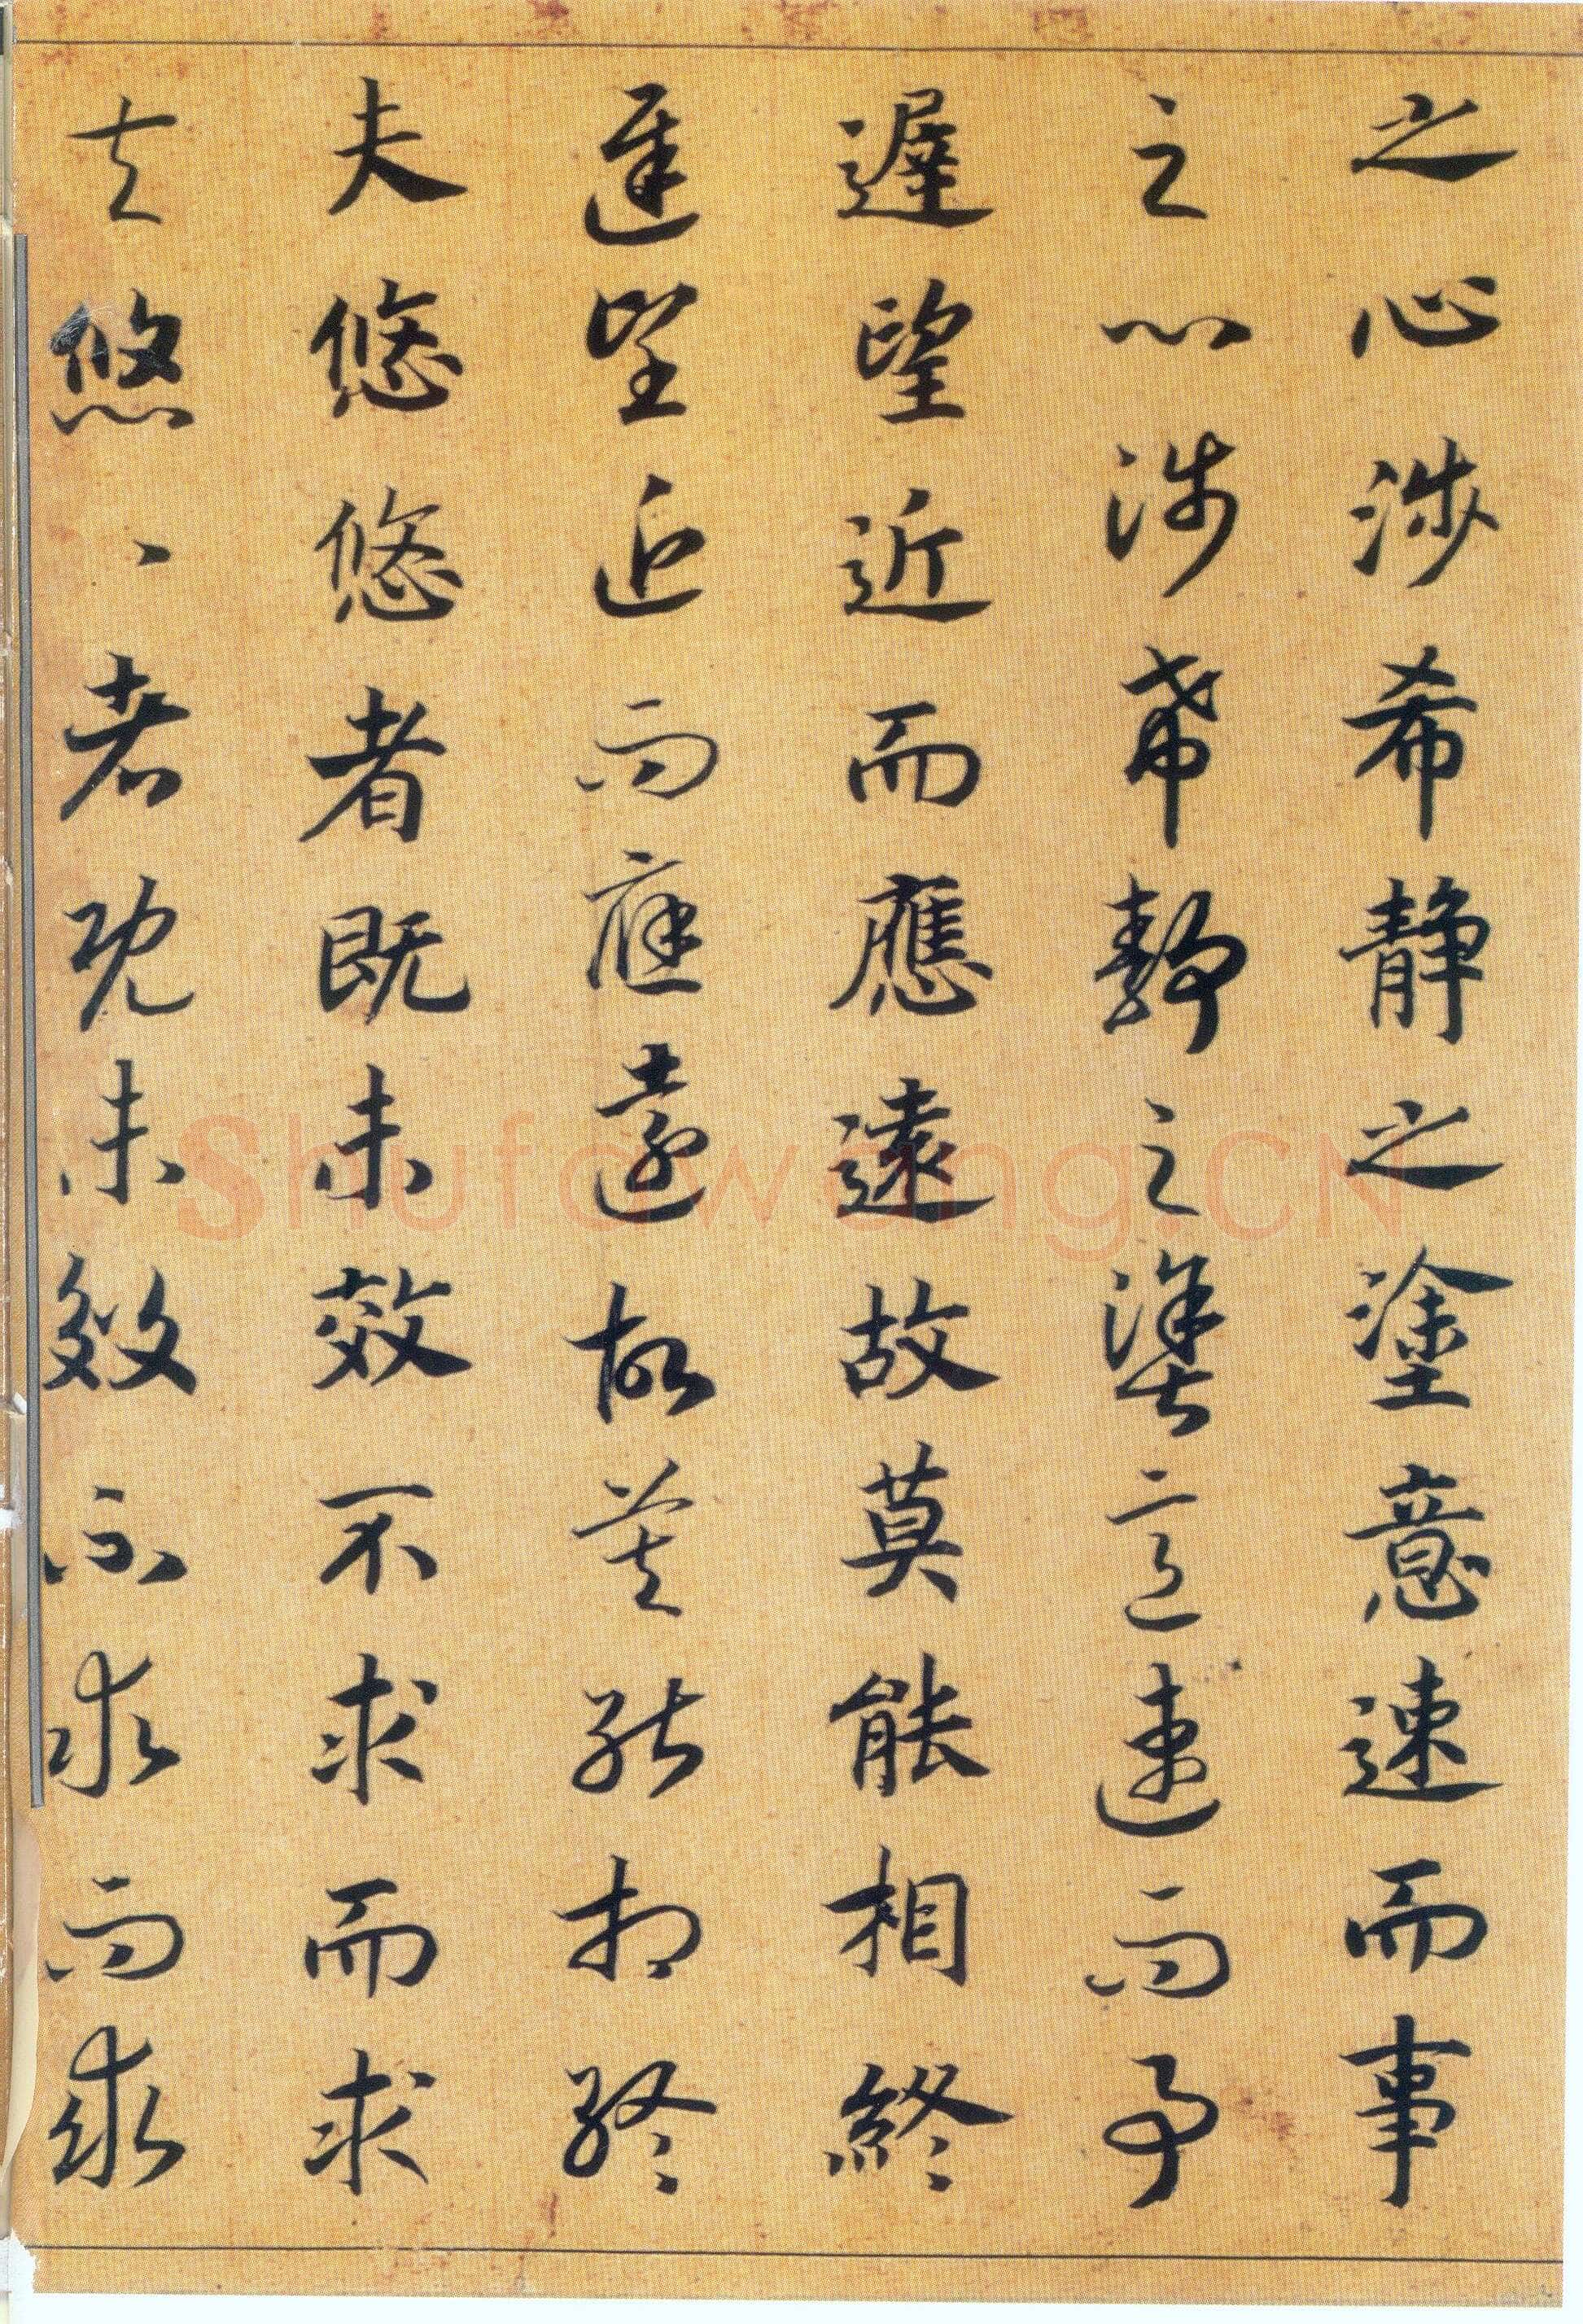 之心涉希静之塗意速而事
之心涉希静之塗意速而事
遲望近而應遠故莫能相終
遲望近而應遠故莫能相終
夫悠悠者既未效不求而求
夫悠、者既未效不求而求
Shufawang.CN